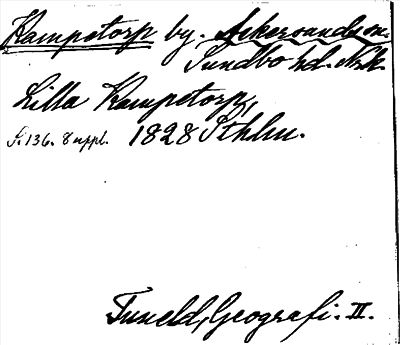 Kampetorp by. Askersunds sn.
Sundbo hd. Nrk.
Lilla Kampetorp,
S. 136. 8 uppl. 1828 Sthlm.
Tuneld, Geografi. II.